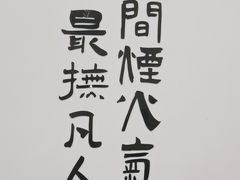 間煙火氣
最撫凡人